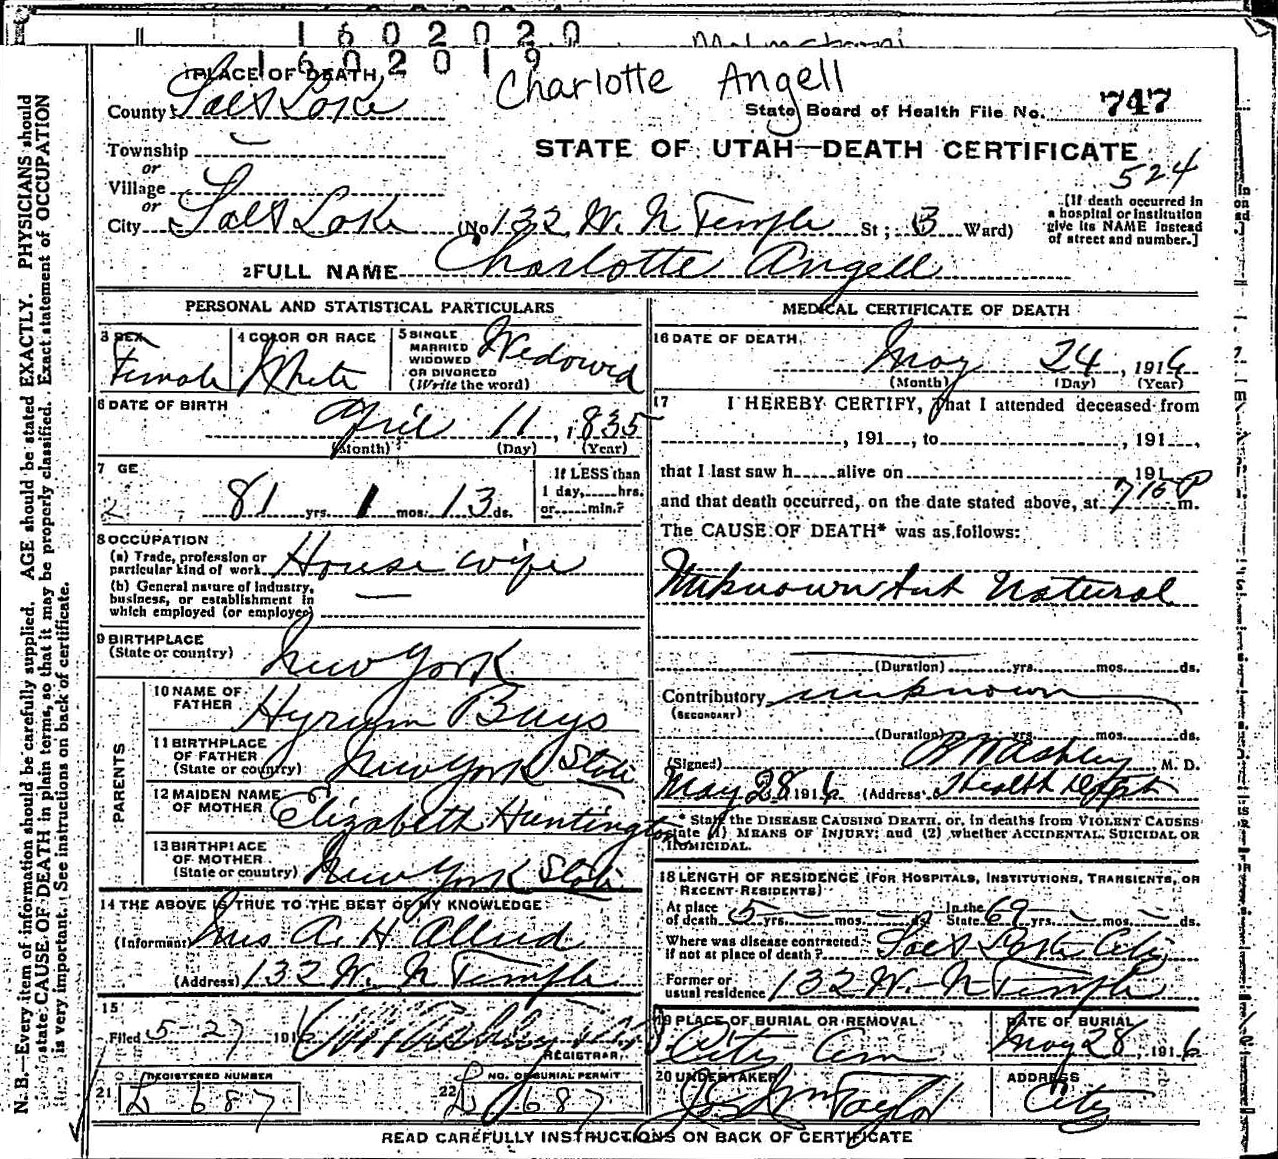 1602020
1602019
Charlotte Angell
1 PLACE OF DEATH
County Salt Lake
State Board of Health File No. 747
Township
or
Village
or
STATE OF UTAH—DEATH CERTIFICATE
524
City Salt Lake (No 132 W. N Temple St; 3 Ward)
[If death occurred in a hospital or institution give its NAME instead of street and number.]
2 FULL NAME Charlotte Angell
PERSONAL AND STATISTICAL PARTICULARS
3 SEX Female
4 COLOR OR RACE White
5 SINGLE MARRIED WIDOWED OR DIVORCED (Write the word) Widowed
6 DATE OF BIRTH
April 11, 1835
(Month) (Day) (Year)
7 GE
81 yrs. 1 mos. 13 ds.
If LESS than 1 day, hrs. or min.?
8 OCCUPATION
(a) Trade, profession or particular kind of work House wife
(b) General nature of industry, business, or establishment in which employed (or employer) —
9 BIRTHPLACE (State or country) New York
PARENTS
10 NAME OF FATHER Hyrum Bays
11 BIRTHPLACE OF FATHER (State or country) New York State
12 MAIDEN NAME OF MOTHER Elizabeth Huntington
13 BIRTHPLACE OF MOTHER (State or country) New York State
14 THE ABOVE IS TRUE TO THE BEST OF MY KNOWLEDGE
(Informant) Mrs A. H Allred
(Address) 132 W. N Temple
15
Filed 5-27 1916
REGISTRAR.
21 REGISTERED NUMBER
L 687
22 NO. OF BURIAL PERMIT
L 687
MEDICAL CERTIFICATE OF DEATH
16 DATE OF DEATH
May 24, 1916
(Month) (Day) (Year)
17 I HEREBY CERTIFY, that I attended deceased from
, 191 , to , 191 ,
that I last saw h alive on 191
and that death occurred, on the date stated above, at 715 P m.
The CAUSE OF DEATH* was as follows:
Unknown but Natural
(Duration) yrs. mos. ds.
Contributory unknown
(SECONDARY)
(Duration) yrs. mos. ds.
(Signed) M. D.
May 28 1916 (Address) Health Dept
* State the DISEASE CAUSING DEATH, or, in deaths from VIOLENT CAUSES
state (1) MEANS OF INJURY; and (2) whether ACCIDENTAL, SUICIDAL OR
HOMICIDAL.
18 LENGTH OF RESIDENCE (FOR HOSPITALS, INSTITUTIONS, TRANSIENTS, OR
RECENT RESIDENTS)
At place of death 5 yrs. — mos. — ds. In the State 69 yrs. — mos. — ds.
Where was disease contracted, if not at place of death? Salt Lake City
Former or usual residence 132 W. N Temple
19 PLACE OF BURIAL OR REMOVAL
City Cem
DATE OF BURIAL
May 28, 1916
20 UNDERTAKER
Jos Wm Taylor
ADDRESS
City
READ CAREFULLY INSTRUCTIONS ON BACK OF CERTIFICATE
N. B.—Every item of information should be carefully supplied. AGE should be stated EXACTLY. PHYSICIANS should
state CAUSE OF DEATH in plain terms, so that it may be properly classified. Exact statement of OCCUPATION
is very important. See instructions on back of certificate.